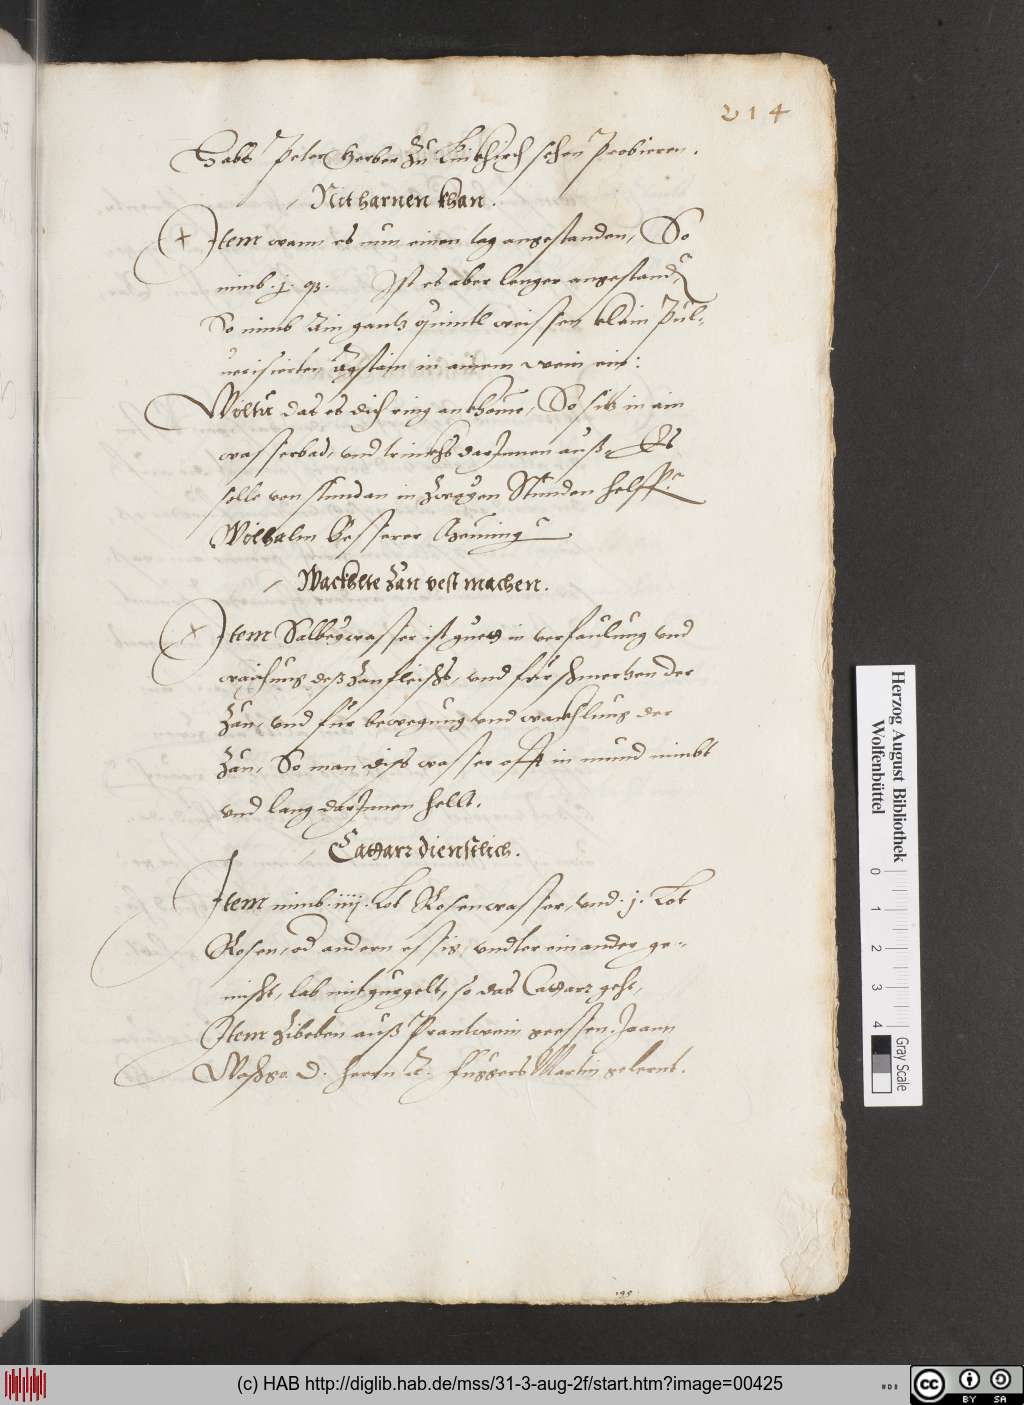 214
Habs Peter Gerber zu Kirchirch sehen Probieren.
Nit harnen khan.
Item wann es nun einen tag angestanden, So
nimb .j. q3. Ist es aber lenger angestand
So nimb Ain gantz quintl weissen klain Pul-
uerisierten Agstain in ainem wein ein:
Wiltu das es dich ring ankhome, So sitz in ain
wasserbad, und trinckhs darInnen auß. Es
solle von stundan in zwayen Stunden helffen
Wilhalm besserer
Wackhlte Zän vest machen.
Item Salbeywasser ist guett in verfaulung und
waichung deß zanfleischs, und für schmertzen der
Zän, und für bewegung und wackhlung der
Zän, So man diss wasser offt in mund nimbt
und lang darInnen hellt.
Catharr dienstlich.
Item nimb .iiij. Lot Rosenwasser, und .j. Lot
Rosen, od andern essig, undter einander ge-
mischt, lab mit gurgelt, so das Catharr geht,
Item Zibeben auß Prantwein geessen. Joann
D. herrn Fuggers Martin gelernt.
Herzog August Bibliothek
Wolfenbüttel
0 1 2 3 4
Gray Scale
(c) HAB http://diglib.hab.de/mss/31-3-aug-2f/start.htm?image=00425
cc BY SA